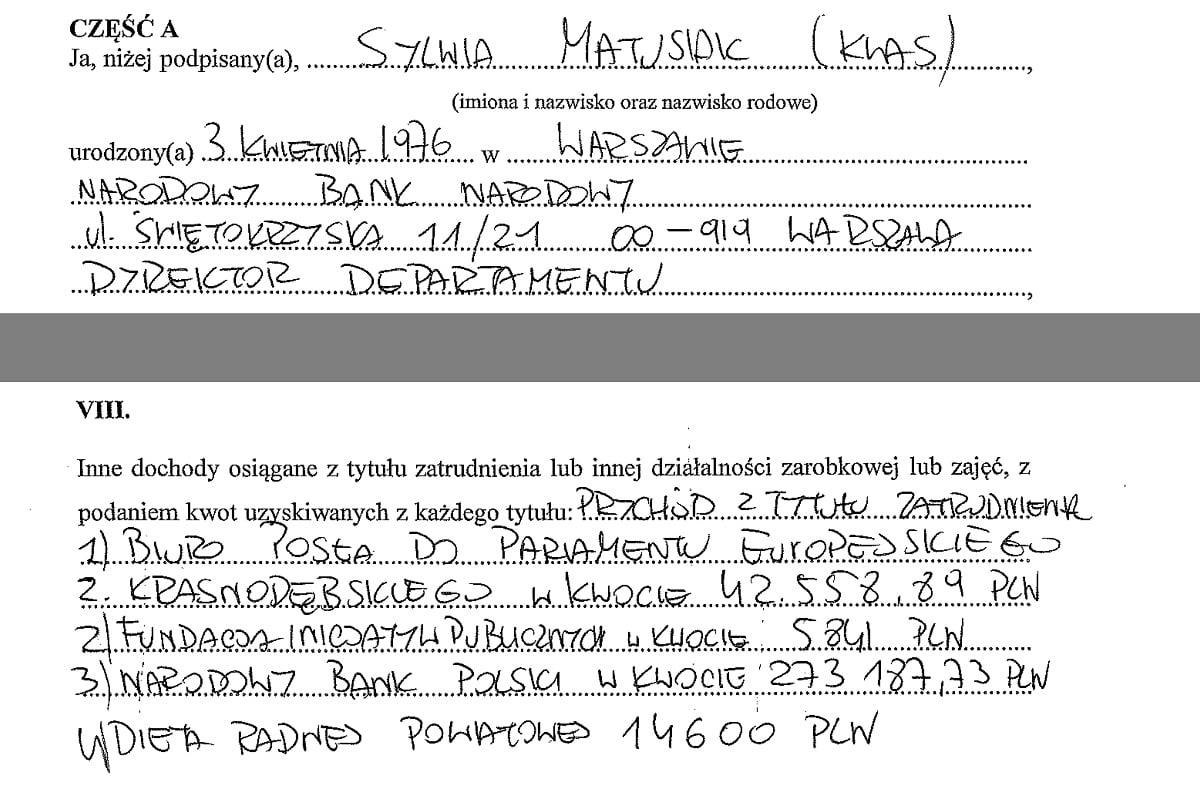 CZĘŚĆ A
Ja, niżej podpisany(a), SYLWIA MATUSIAK (KLAS),
(imiona i nazwisko oraz nazwisko rodowe)
urodzony(a) 3 KWIETNIA 1976 w WARSZAWIE
NARODOWY BANK NARODOWY
ul. ŚWIĘTOKRZYSKA 11/21 00-919 WARSZAWA
DYREKTOR DEPARTAMENTU,
VIII.
Inne dochody osiągane z tytułu zatrudnienia lub innej działalności zarobkowej lub zajęć, z
podaniem kwot uzyskiwanych z każdego tytułu: PRZYCHÓD Z TYTUŁU ZATRUDNIENIA
1) BIURO POSŁA DO PARLAMENTU EUROPEJSKIEGO
Z. KRASNODĘBSKIEGO W KWOCIE 42.558,89 PLN
2) FUNDACJA INICJATYW PUBLICZNYCH W KWOCIE 5841 PLN
3) NARODOWY BANK POLSKI W KWOCIE 273 187,73 PLN
4) DIETA RADNEJ POWIATOWEJ 14600 PLN